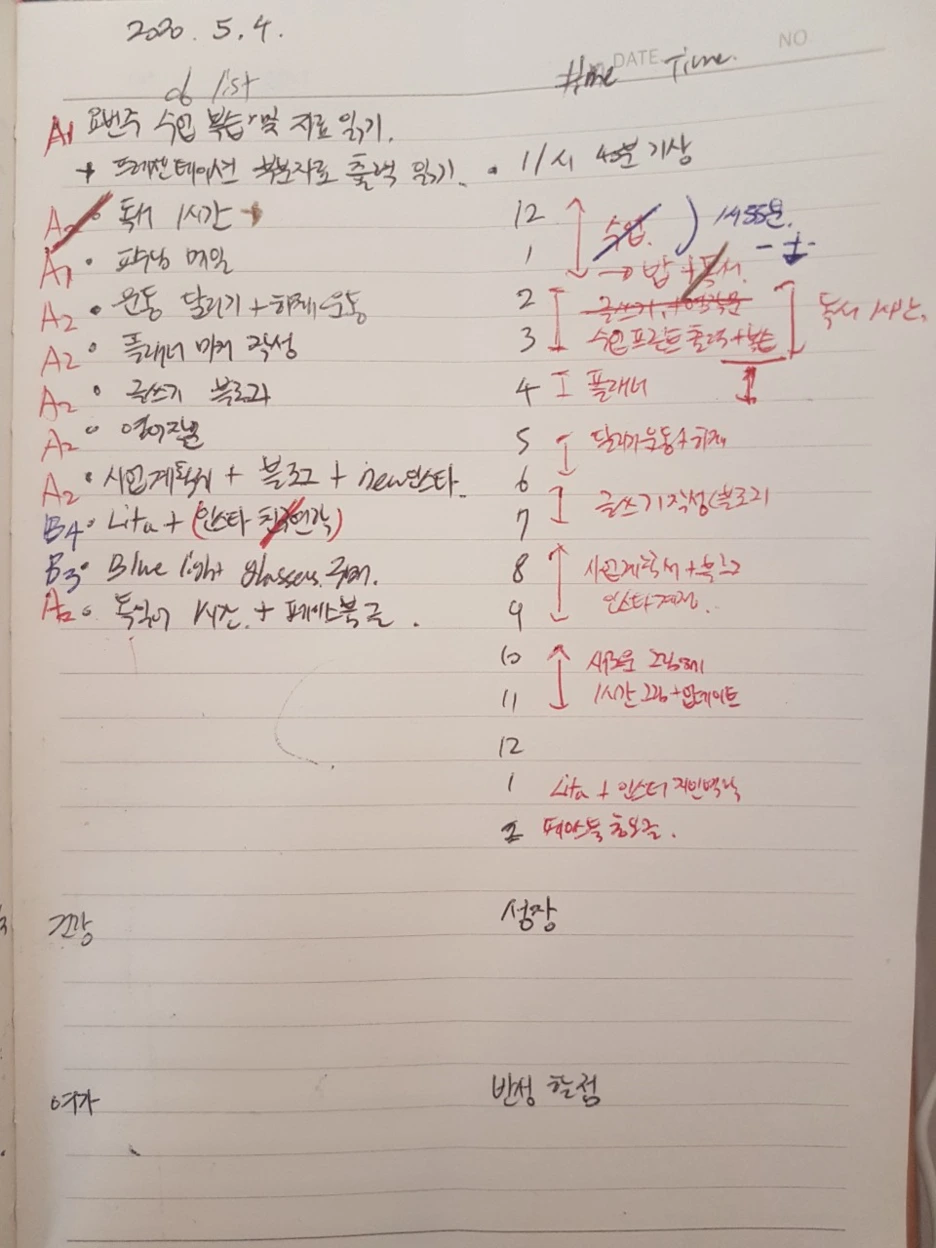 2020. 5. 4.
DATE NO
list
Time
A1 요번주 수업 복습 및 자료 읽기.
+ 프레젠테이션 부분자료 출력 읽기.
A2 • 독서 1시간
A1 • 교수님 메일
A2 • 운동 달리기 + 하체운동
A2 • 플래너 마커 작성
A2 • 글쓰기 블로그
A2 • 영어저널
A2 • 사업계획서 + 블로그 + new인스타
B4 • Lita + (인스타
B3 • Blue light glasses 구매.
A2 • 독일어 1시간 + 페이스북 글.
• 11시 40분 기상
12 수업. 1시 55분.
1 → 밥 + 독서.
2 글쓰기
3 수업 프린트 출력 + 복습 독서 1시간,
4 플래너
5 달리기운동 + 하체
6
7 글쓰기 작성(블로그)
8 사업계획서 + 블로그
9 인스타계정.
10 새로운
11 1시간 그림 + 업데이트
12
1 Lita + 인스타
2 페이스북
건강
성장
여가
반성 할 점